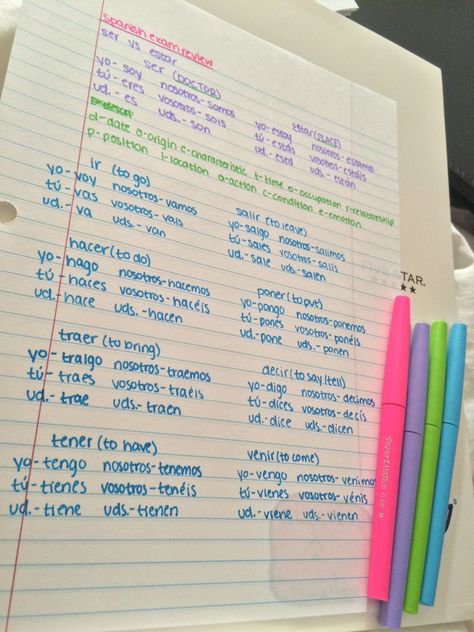 spanish exam review
ser vs estar
ser (DOCTOR)
yo-soy nosotros-somos
tú-eres vosotros-sois
ud.-es uds.-son
estar (PLACE)
yo-estoy nosotros-estamos
tú-estás vosotros-estáis
ud.-está uds.-están
d-date o-origin c-characteristic t-time o-occupation r-relationship
p-position l-location a-action c-condition e-emotion
ir (to go)
yo-voy nosotros-vamos
tú-vas vosotros-vais
ud.-va uds.-van
salir (to leave)
yo-salgo nosotros-salimos
tú-sales vosotros-salís
ud.-sale uds-salen
hacer (to do)
yo-hago nosotros-hacemos
tú-haces vosotros-hacéis
ud.-hace uds.-hacen
poner (to put)
yo-pongo nosotros-ponemos
tú-pones vosotros-ponéis
ud.-pone uds.-ponen
traer (to bring)
yo-traigo nosotros-traemos
tú-traes vosotros-traéis
ud.-trae uds.-traen
decir (to say/tell)
yo-digo nosotros-decimos
tú-dices vosotros-decís
ud.-dice uds.-dicen
tener (to have)
yo-tengo nosotros-tenemos
tú-tienes vosotros-tenéis
ud.-tiene uds.-tienen
venir (to come)
yo-vengo nosotros-venimos
tú-vienes vosotros-vénis
ud.-viene uds.-vienen
TAR.